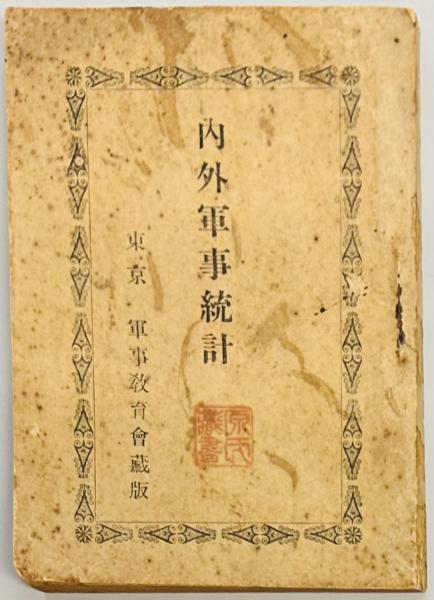 內外軍事統計
東京 軍事敎育會藏版
原氏
藏書